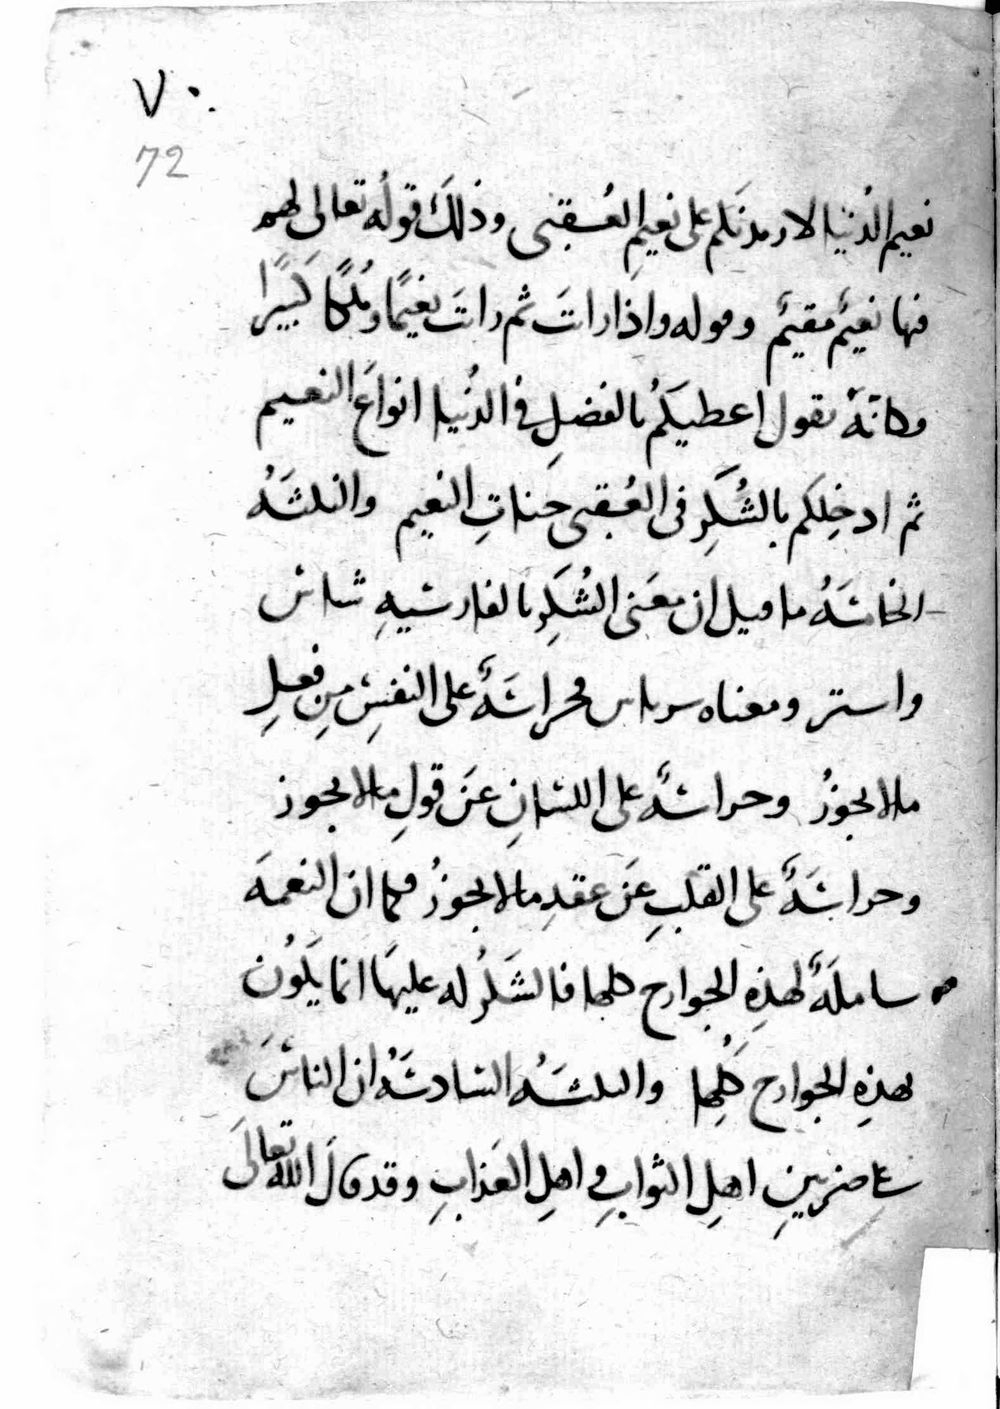 ٧٠
72
نعيم الدُنيا لازيدنَكم على نعيمِ العُقبى وذلكَ قولُه تعالى لهم
فيها نعيمٌ مقيمٌ وقوله واذا راتَ ثم راتَ نعيمًا ومُلكًا كَبيرًا
وكانّهُ يقول اعطيكُم بالفضلِ في الدُنيا انواعَ النعيم
ثم ادخِلكم بالشُكرِ في العُقبى جناتِ النعيم والنكتَهُ
الخامسَهُ ما قيل ان معنَى الشُكرِ بالفارسيهِ شاس
واستر ومعناه سرباس فحراسَهٌ على النفسِ مِن فعلِ
مالا يجوزُ وحراسَهٌ على اللسَانِ عَن قولِ مالا يجوز
وحراسَهٌ على القلبِ عَن عقدِ مالا يجوزُ فكما ان النعمَه
ساملَهٌ لهذِه الجوارح كلها فالشكرُ له عليهَا انما يكُون
بهذِه الجوارح كُلِها والنكتَهُ السادسَهُ ان الناسَ
على ضربينِ اهلِ الثوابِ واهلِ العَذابِ وقد قالَ الله تعالَى